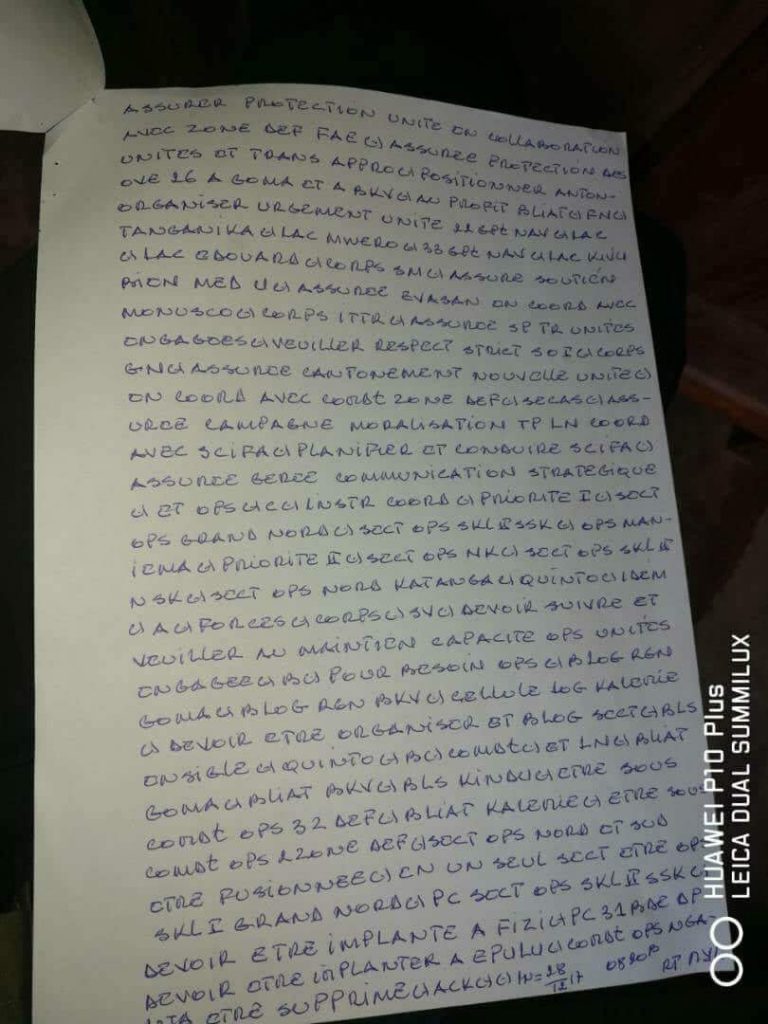 ASSURER PROTECTION UNITE EN COLLABORATION
AVEC ZONE DEF FAE (,) ASSUREE PROTECTION DES
UNITES ET TRANS APPRO (,) POSITIONNER ANTON-
OVE 26 A GOMA ET A BKV (,) AU PROFIT BLIAT (,) FN (,)
ORGANISER URGEMENT UNITE 22 GPT NAV (,) LAC
TANGANIKA (,) LAC MWERO (,) 33 GPt NAV (,) LAC KIVU
(,) LAC EDOUARD (,) CORPS SM (,) ASSURE SOUTIEN
MED (,) ASSUREE EVASAN EN COORD AVEC
MONUSCO (,) CORPS ITTR (,) ASSUREE SP TR UNITES
ENGAGEES (,) VEUILLER RESPECT STRICT SOI (,) CORPS
GN (,) ASSUREE CANTONEMENT NOUVELLE UNITE (,)
EN COORD AVEC COMDt ZONE DEF (,) SECAS (,) ASS-
UREE CAMPAGNE MORALISATION TP EN COORD
AVEC SCIFA (,) PLANIFIER ET CONDUIRE SCIFA (,)
ASSUREE GEREE COMMUNICATION STRATEGIQUE
(,) ET OPS (,) C (,) INSTR COORD (,) PRIORITE I (,) SECT
OPS GRAND NORD (,) SECT OPS SKL II SSK (,) OPS MAN-
IEMA (,) PRIORITE II (,) SECT OPS NK (,) SECT OPS SKL II
NSK (,) SECT OPS NORD KATANGA (,) QUINTO (,) IDEM
(,) A (,) FORCES (,) CORPS (,) SV (,) DEVOIR SUIVRE ET
VEUILLER AU MAINTIEN CAPACITE OPS UNITES
ENGAGEE (,) B (,) POUR BESOIN OPS (,) BLOG RGN
GOMA (,) BLOG RGN BKV (,) CELLULE LOG KALEMIE
(,) DEVOIR ETRE ORGANISER ET BLOG SECT (,) BLS
ENSIBLE (,) QUINTO (,) B (,) COMDt (,) ET LN (,) BLIAT
GOMA (,) BLIAT BKV (,) BLS KINDU (,) ETRE SOUS
COMDt OPS 3 2 DEF (,) BLIAT KALEMIE (,) ETRE SOUS
COMDt OPS 2 ZONE DEF (,) SECT OPS NORD ET SUD
ETRE FUSIONNEE (,) EN UN SEUL SECT ETRE OPS
SKL I GRAND NORD (,) PC SECT OPS SKL II SSK (,)
DEVOIR ETRE IMPLANTE A FIZI (,) PC 31 BDE
DEVOIR ETRE IMPLANTER A EPULU (,) COMDt OPS NGA-
ETRE SUPPRIME (,) ACK (,) (,) 28
12 17 0820B
HUAWEI P10 Plus
LEICA DUAL SUMMILUX